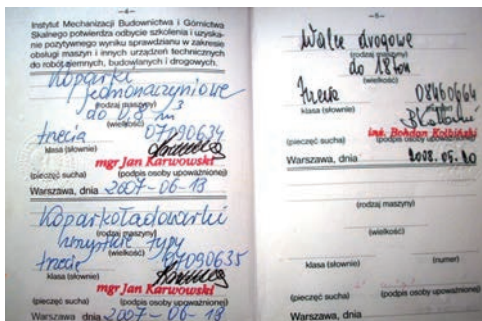 —4—
Instytut Mechanizacji Budownictwa i Górnictwa
Skalnego potwierdza odbycie szkolenia i uzyska-
nie pozytywnego wyniku sprawdzianu w zakresie
obsługi maszyn i innych urządzeń technicznych
do robót ziemnych, budowlanych i drogowych.
Koparki
jednonaczyniowe
(rodzaj maszyny)
do 0,8 m³
(wielkość)
trzecia 07090634
klasa (słownie)
mgr Jan Karwowski
(pieczęć sucha) (podpis osoby upoważnionej)
Warszawa, dnia 2007-06-18
Koparkoładowarki
(rodzaj maszyny)
wszystkie typy
(wielkość)
trzecia 07090635
klasa (słownie)
mgr Jan Karwowski
(pieczęć sucha) (podpis osoby upoważnionej)
Warszawa, dnia 2007-06-18
—5—
Walce drogowe
(rodzaj maszyny)
do 18 ton
(wielkość)
trzecia 08460664
klasa (słownie) (numer)
inż. Bohdan
(pieczęć sucha) (podpis osoby upoważnionej)
Warszawa, dnia 2008.05.20
(rodzaj maszyny)
(wielkość)
klasa (słownie) (numer)
(pieczęć sucha) (podpis osoby upoważnionej)
Warszawa, dnia